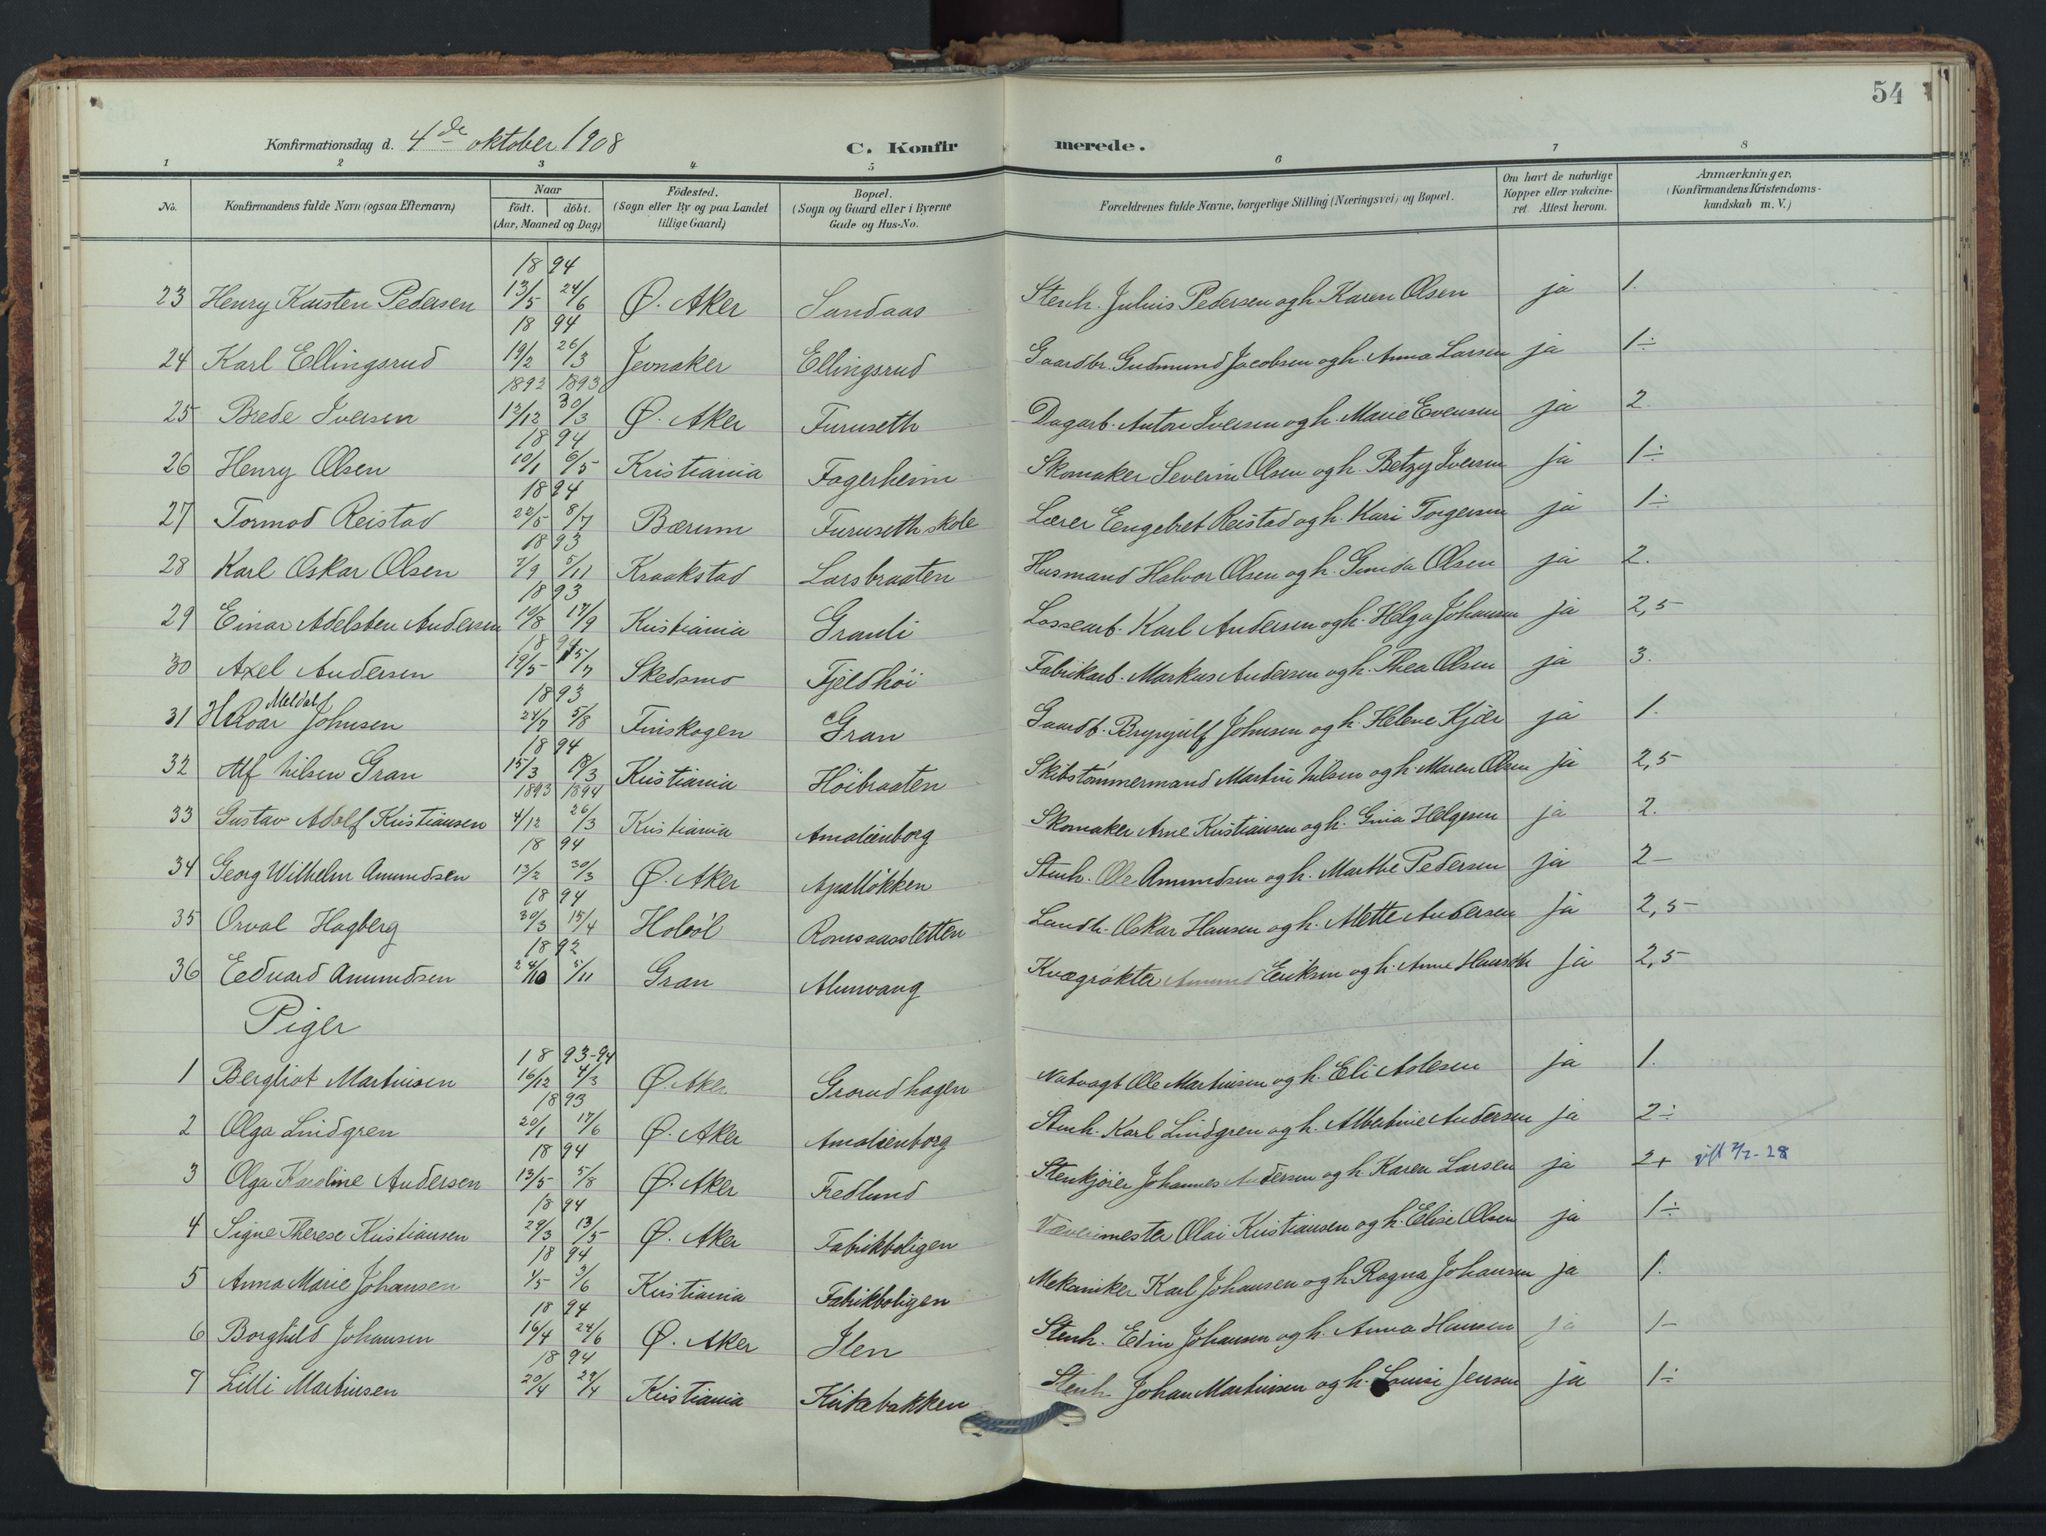 54
Konfirmationsdag d. 4de oktober 1908 C. Konfirmerede.
1 2 3 4 5 6 7 8
No. Konfirmandens fulde Navn (ogsaa Efternavn) Naar födt. döbt. (Aar, Maaned og Dag) Födested. (Sogn eller By og paa Landet tillige Gaard) Bopæl. (Sogn og Gaard eller i Byerne Gade og Hus-No. Forældrenes fulde Navne, borgerlige Stilling (Næringsvei) og Bopæl. Om havt de naturlige Kopper eller vakcineret. Attest herom. Anmærkninger. (Konfirmandens Kristendomskundskab m. V.)
1894
23 Henry Karsten Pedersen 13/5 24/6 Ø. Aker Sandaas Stenh. Julius Pedersen og h. Karen Olsen ja 1.
1894
24 Karl Ellingsrud 19/2 26/3 Jevnaker Ellingsrud Gaardbr. Gudmund Jacobsen og h. Anna Larsen ja 1÷
1892 1893
25 Brede Iversen 13/12 30/3 Ø. Aker Furuseth Dagarb. Anton Iversen og h. Marie Evensen ja 2.
1894
26 Henry Olsen 10/1 6/5 Kristiania Fagerheim Skomaker Severin Olsen og h. Betzy Iversen ja 1÷
1894
27 Tormod Reistad 22/5 8/7 Bærum Furuseth skole Lærer Engebret Reistad og h. Kari Torgersen ja 1÷
1893
28 Karl Oskar Olsen 7/9 5/11 Kraakstad Larsbraaten Husmand Halvor Olsen og h. Olsen ja 2.
1893
29 Einar Adelsten Andersen 10/8 17/9 Kristiania Granli Lossearb. Karl Andersen og h. Helga Johansen ja 2,5
1894
30 Axel Andersen 19/5 15/7 Skedsmo Fjeldhöi Fabrikarb. Markus Andersen og h. Thea Olsen ja 3.
1893
31 H. Roar Meldal Johnsen 24/7 5/8 Finskogen Gran Gaardb. Brynjulf Johnsen og h. Helene Kjær ja 1.
1894
32 Alf Nilsen Gran 15/3 18/3 Kristiania Höibraaten Skibstømmermand Martin Nilsen og h. Maren Olsen ja 2,5
1893 1894
33 Gustav Adolf Kristiansen 4/12 26/3 Kristiania Amalienborg Skomaker Arne Kristiansen og h. Gina Helgesen ja 2.
1894
34 Georg Wilhelm Amundsen 13/2 30/3 Ø. Aker Apalløkken Stenh. Ole Amundsen og h. Marthe Pedersen ja 2-
1894
35 Orval Hagberg 30/3 15/4 Holøl Romsaassletten Landh. Oskar Hansen og h. Mette Andersen ja 2,5
1892
36 Eedvard Amundsen 24/10 5/11 Gran Alunvang Kvægrøkter Amund Eriksen og h. Anne ja 2,5
Piger
1893-94
1 Bergliot Martinsen 16/12 4/3 Ø. Aker Grorudhagen Natvagt Ole Martinsen og h. Eli Aslesen ja 1.
1893
2 Olga Lindgren 20/1 17/6 Ø. Aker Amalienborg Stenh. Karl Lindgren og h. Albertine Andersen ja 2÷
1894
3 Olga Karoline Andersen 13/5 5/8 Ø. Aker Fredlund Stenkjører Johannes Andersen og h. Karen Larsen ja 2+ gift 7/7-28
1894
4 Signe Therese Kristiansen 29/3 13/5 Ø. Aker Fabrikboligen Væverimester Olai Kristiansen og h. Elise Olsen ja 1÷
1894
5 Anna Marie Johansen 4/5 3/6 Kristiania Fabrikboligen Mekaniker Karl Johansen og h. Ragna Johansen ja 1.
1894
6 Borghild Johansen 16/4 24/6 Ø. Aker Ilen Stenh. Edin Johansen og h. Anna Hansen ja 1-
1894
7 Lilli Martinsen 20/4 29/4 Kristiania Kirkebakken Stenh. Johan Martinsen og h. Louise Jensen ja 1÷